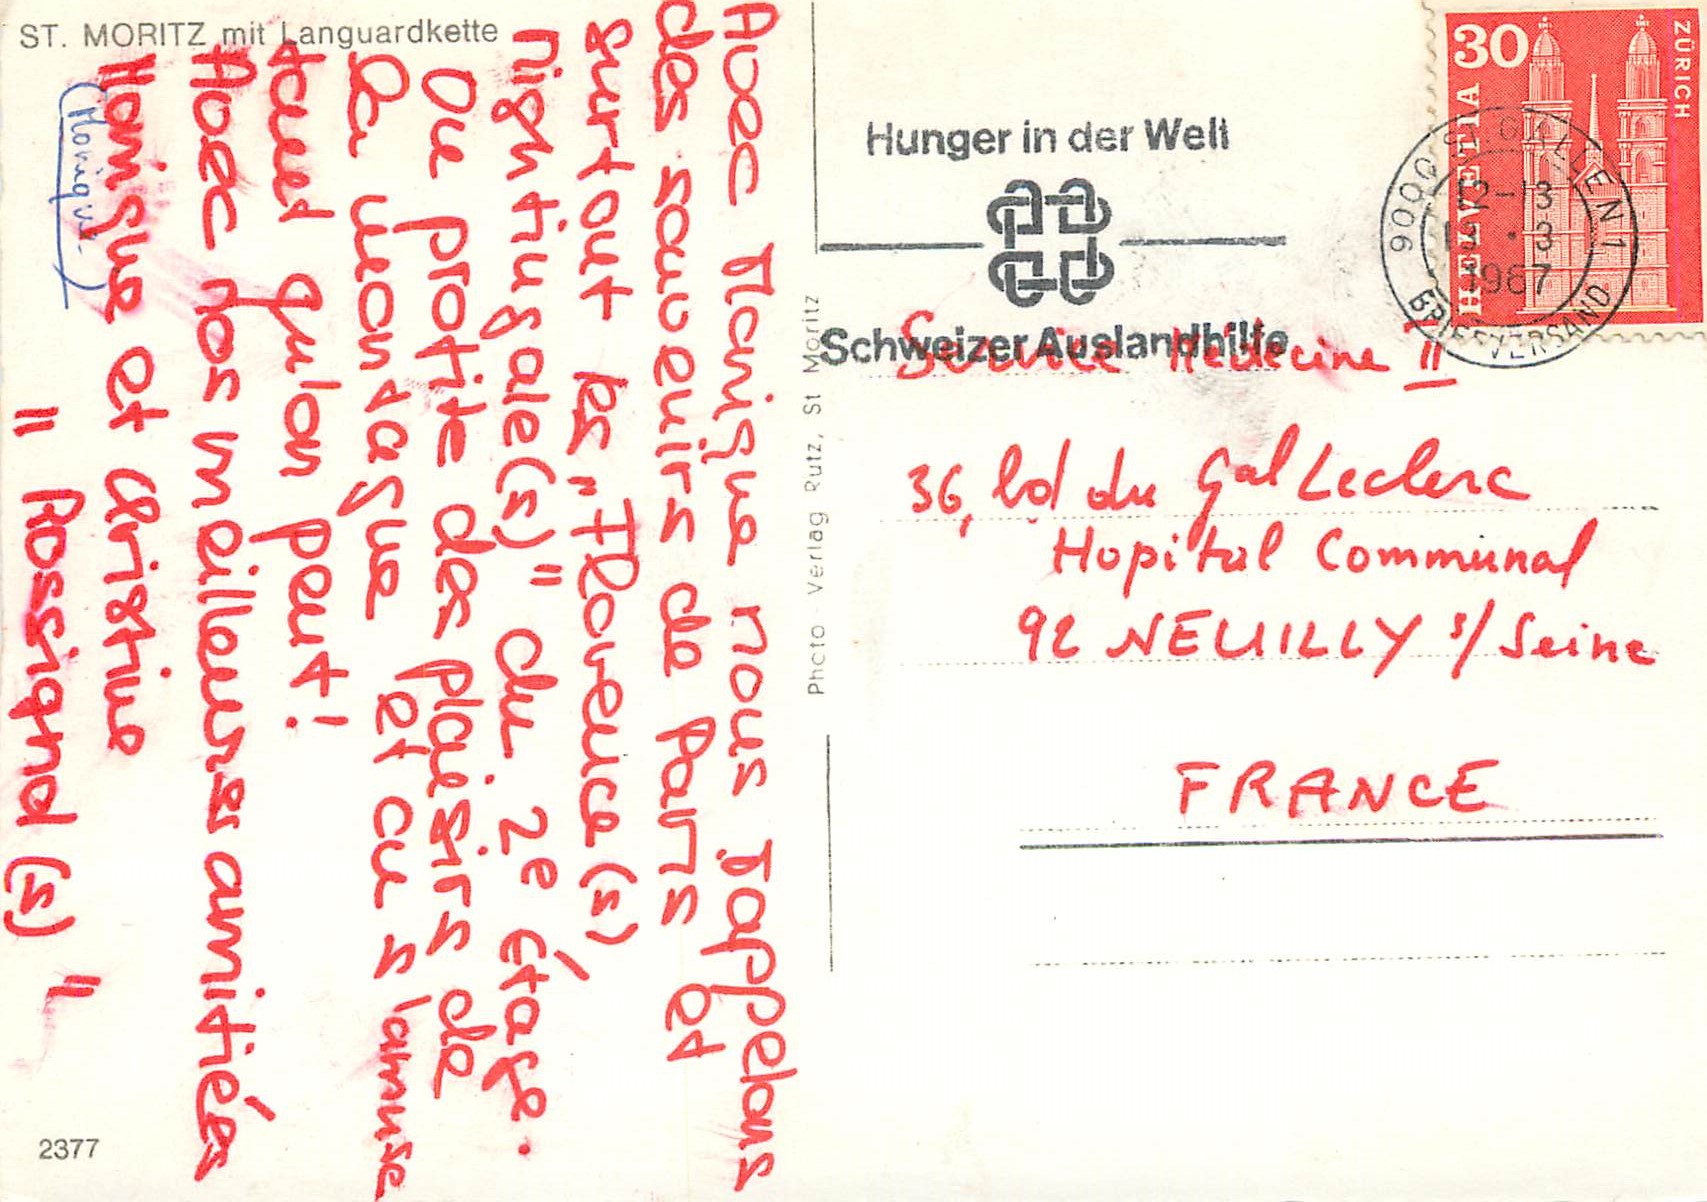 ST. MORITZ mit Languardkette
Avec Monique nous rappelons
des souvenirs de Paris et
surtout les "Florence(s)
Nightingale(s)" du 2e Étage.
On profite des plaisirs de
la montagne et on s'amuse
tant qu'on peut!
Avec nos meilleures amitiés
Monique et Christine
" Rossignol(s) "
(Monique)
2377
Photo-Verlag Rutz, St Moritz
Hunger in der Welt
Schweizer Auslandhilfe
30
HELVETIA
ZÜRICH
9000 ST. GALLEN 1
12-13
3
1967
BRIEFVERSAND
Service Médecine II
36, bd du Gal Leclerc
Hopital Communal
92 NEUILLY s/Seine
FRANCE